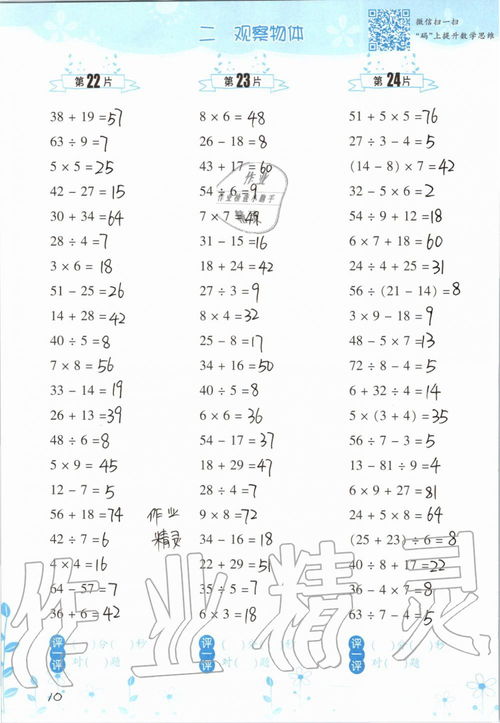 二 观察物体
微信扫一扫
“码”上提升数学思维
第22片
38 + 19 = 57
63 ÷ 9 = 7
5 × 5 = 25
42 - 27 = 15
30 + 34 = 64
28 ÷ 4 = 7
3 × 6 = 18
51 - 25 = 26
14 + 28 = 42
40 ÷ 5 = 8
7 × 8 = 56
33 - 14 = 19
26 + 13 = 39
48 ÷ 6 = 8
5 × 9 = 45
12 - 7 = 5
56 + 18 = 74
42 ÷ 7 = 6
4 × 4 = 16
64 - 57 = 7
36 + 6 = 42
评一评
( )分( )秒
对( )题
第23片
8 × 6 = 48
26 - 18 = 8
43 + 17 = 60
54 ÷ 6 = 9
7 × 7 = 49
31 - 15 = 16
18 + 24 = 42
27 ÷ 3 = 9
8 × 4 = 32
25 - 8 = 17
34 + 16 = 50
40 ÷ 5 = 8
6 × 6 = 36
54 - 17 = 37
18 + 29 = 47
28 ÷ 4 = 7
9 × 8 = 72
34 - 16 = 18
22 + 29 = 51
35 ÷ 5 = 7
6 × 3 = 18
评一评
( )分( )秒
对( )题
第24片
51 + 5 × 5 = 76
27 ÷ 3 - 4 = 5
(14 - 8) × 7 = 42
32 - 5 × 6 = 2
54 ÷ 9 + 12 = 18
6 × 7 + 18 = 60
24 ÷ 4 + 25 = 31
56 ÷ (21 - 14) = 8
3 × 9 - 18 = 9
48 - 5 × 7 = 13
72 ÷ 8 - 4 = 5
6 + 32 ÷ 4 = 14
5 × (3 + 4) = 35
56 ÷ 7 - 3 = 5
13 - 81 ÷ 9 = 4
6 × 9 + 27 = 81
24 + 5 × 8 = 64
(25 + 23) ÷ 6 = 8
40 ÷ 8 + 17 = 22
36 - 4 × 7 = 8
63 ÷ 7 - 4 = 5
评一评
( )分( )秒
对( )题
作业
精灵
作业精灵
10